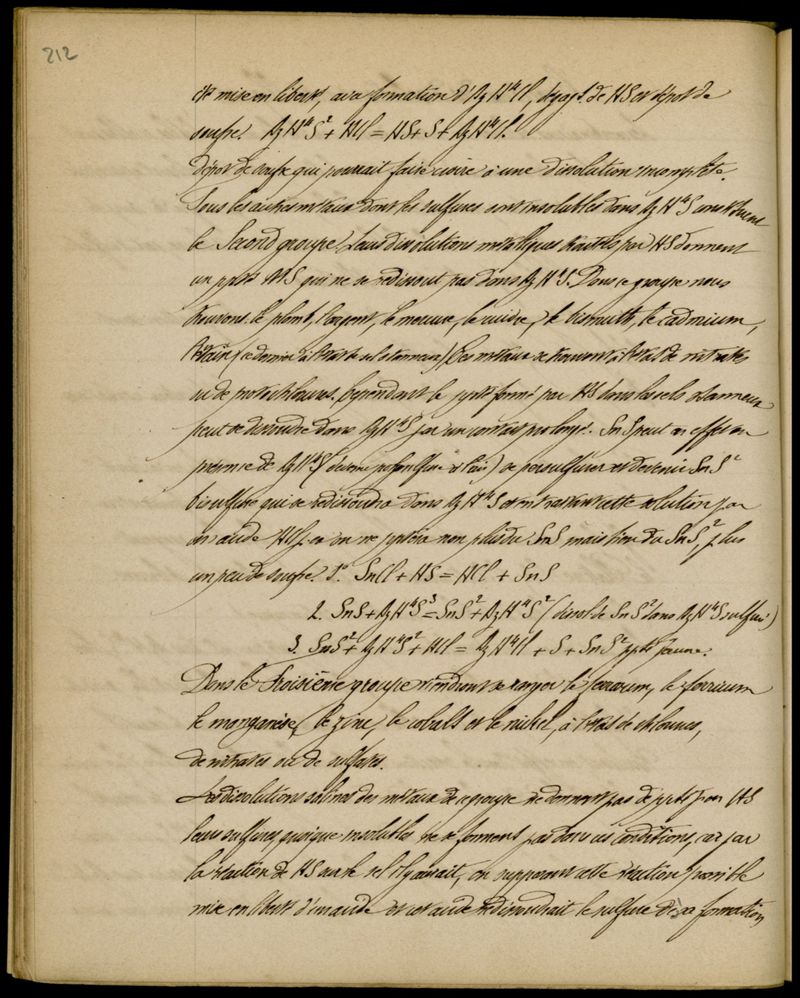 212
est mise en liberté, avec formation d'AzH⁴Cl, dégagt. de HS et dépot de
soufre! AzH⁴S² + HCl = HS + S + AzH⁴Cl.
dépot de soufre qui pourrait faire croire à une dissolution incomplète.
Tous les autres métaux dont les sulfures sont insolubles dans AzH⁴S constituent
le Second groupe. Leurs dissolutions métalliques traitées par HS donnent
un ppté MS qui ne se redissout pas dans AzH⁴S. Dans ce groupe nous
trouvons le plomb, l'argent, le mercure, le cuivre, le bismuth, le cadmium,
l'étain (ce dernier à l'état de sel stanneux). Ces métaux se trouvent à l'état de nitrates
ou de protochlorures. Cependant le ppté formé par HS dans les sels stanneux
peut se dissoudre dans AzH⁴S par un contact prolongé. SnS peut en effet en
présence de AzH⁴S ( ) se persulfurer et devenir SnS²
bisulfure qui se redissoudra dans AzH⁴S et en traitant cette solution par
un acide HCl, on ne pptera non plus du SnS mais bien du SnS², plus
un peu de soufre. 1°. SnCl + HS = HCl + SnS
2. SnS + AzH⁴S³ = SnS² + AzH⁴S² (dissol. de SnS² dans AzH⁴S sulfuré)
3. SnS² + AzH⁴S² + HCl = AzH⁴Cl + S + SnS² ppté jaune.
Dans le Troisième groupe viendront se ranger le ferrosum, le ferricum
le manganèse, le zinc, le cobalt et le nickel, à l'état de chlorures,
de nitrates ou de sulfates.
Les dissolutions salines des métaux de ce groupe ne donnent pas de ppté par HS
leurs sulfures, quoique insolubles ne se forment pas dans ces conditions, car par
la réaction de HS sur le sel il y aurait, en supposant cette réaction possible
mise en liberté d'un acide et cet acide redissoudrait le sulfure dès sa formation